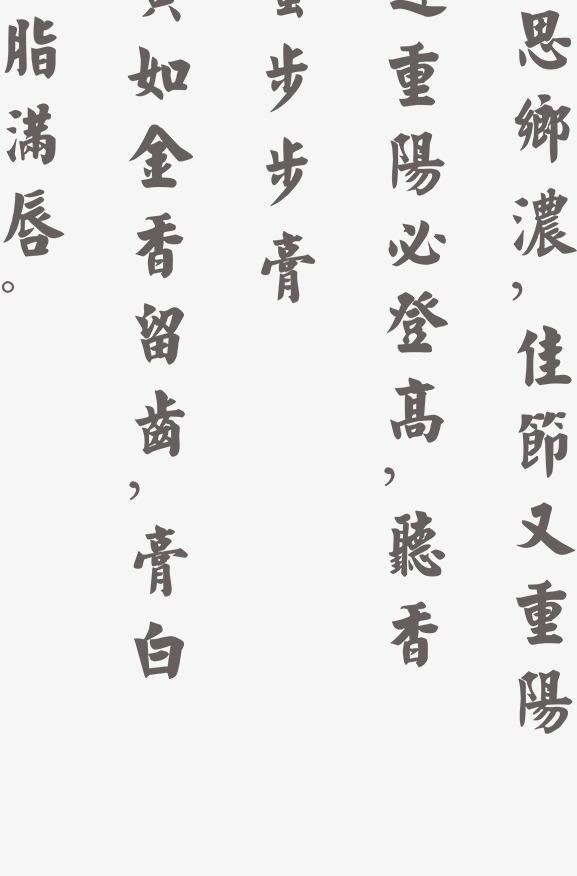 思鄉濃，佳節又重陽
重陽必登高，聽香
步步膏
如金香留齒，膏白
脂滿唇。